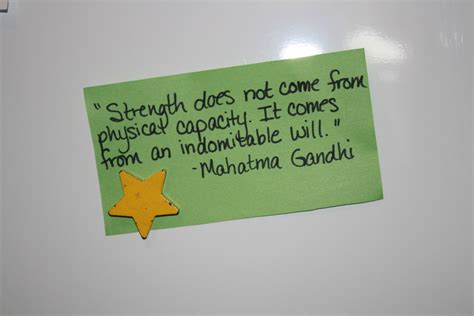 "Strength does not come from
physical capacity. It comes
from an indomitable will."
-Mahatma Gandhi